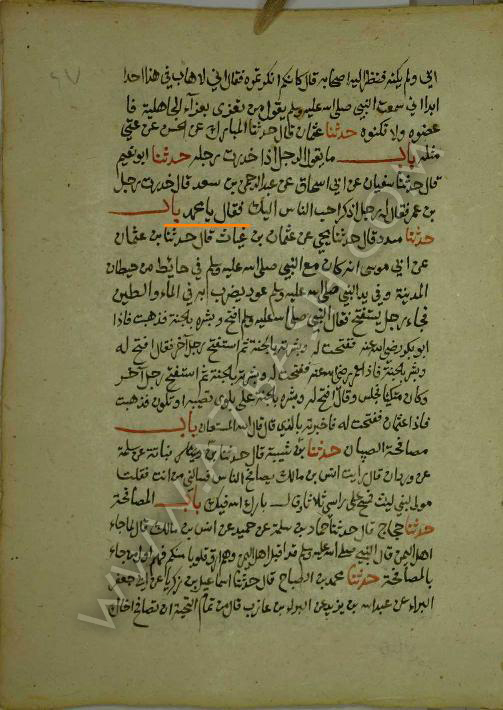 ابي ولم يكنه فنظر اليه اصحابه قال كانكم انكرتموه فقال اني لا اهاب في هذا احدا
ابدا اني سمعت النبي صلى الله عليه وسلم يقول من تعزى بعزاء الجاهلية فا
عضوه ولا تكنوه حدثنا عثمان قال حدثنا المبارك عن الحسن عن عتي
مثله باب ما يقول الرجل اذا خدرت رجله حدثنا ابو نعيم
قال حدثنا سفيان عن ابي اسحاق عن عبد الرحمن بن سعد قال خدرت رجل
بن عمر فقال له رجل اذكر احب الناس اليك فقال يا محمد باب
حدثنا مسدد قال حدثنا يحيي عن عثمان بن غياث قال حدثنا بن عثمان
عن ابي موسى انه كان مع النبي صلى الله عليه وسلم في حائط من حيطان
المدينة وفي يد النبي صلى الله عليه وسلم عود يضرب به في الماء والطين
فجاء رجل يستفتح فقال النبي صلى الله عليه وسلم افتح وبشره بالجنة فذهبت فاذا
ابو بكر رضي الله عنه ففتحت له وبشرته بالجنة ثم استفتح رجل آخر فقال افتح له
وبشره بالجنة فاذا عمر رضي الله عنه ففتحت له وبشرته بالجنة ثم استفتح رجل آخر
وكان متكئا فجلس وقال افتح له وبشره بالجنة على بلوى تصيبه او تكون فذهبت
فاذا عثمان ففتحت له فاخبرته بالذي قال قال الله المستعان باب
مصافحة الصبيان حدثنا بن شيبة قال حدثنا بن نباتة عن سلمة
عن وردان قال رايت انس بن مالك يصافح الناس فسالني من انت فقلت
مولى لبني ليث فمسح على راسي ثلاثا وقال بارك الله فيك باب المصافحة
حدثنا حجاج قال حدثنا حماد بن سلمة عن حميد عن انس بن مالك قال لما جاء
اهل اليمن قال النبي صلى الله عليه وسلم قد اقبل اهل اليمن وهم ارق قلوبا منكم فهم اول من جاء
بالمصافحة حدثنا محمد بن الصباح قال حدثنا اسماعيل بن زكريا عن ابي جعفر
البراء عن عبد الله بن يزيد عن البراء بن عازب قال من تمام التحية ان تصافح اخاك